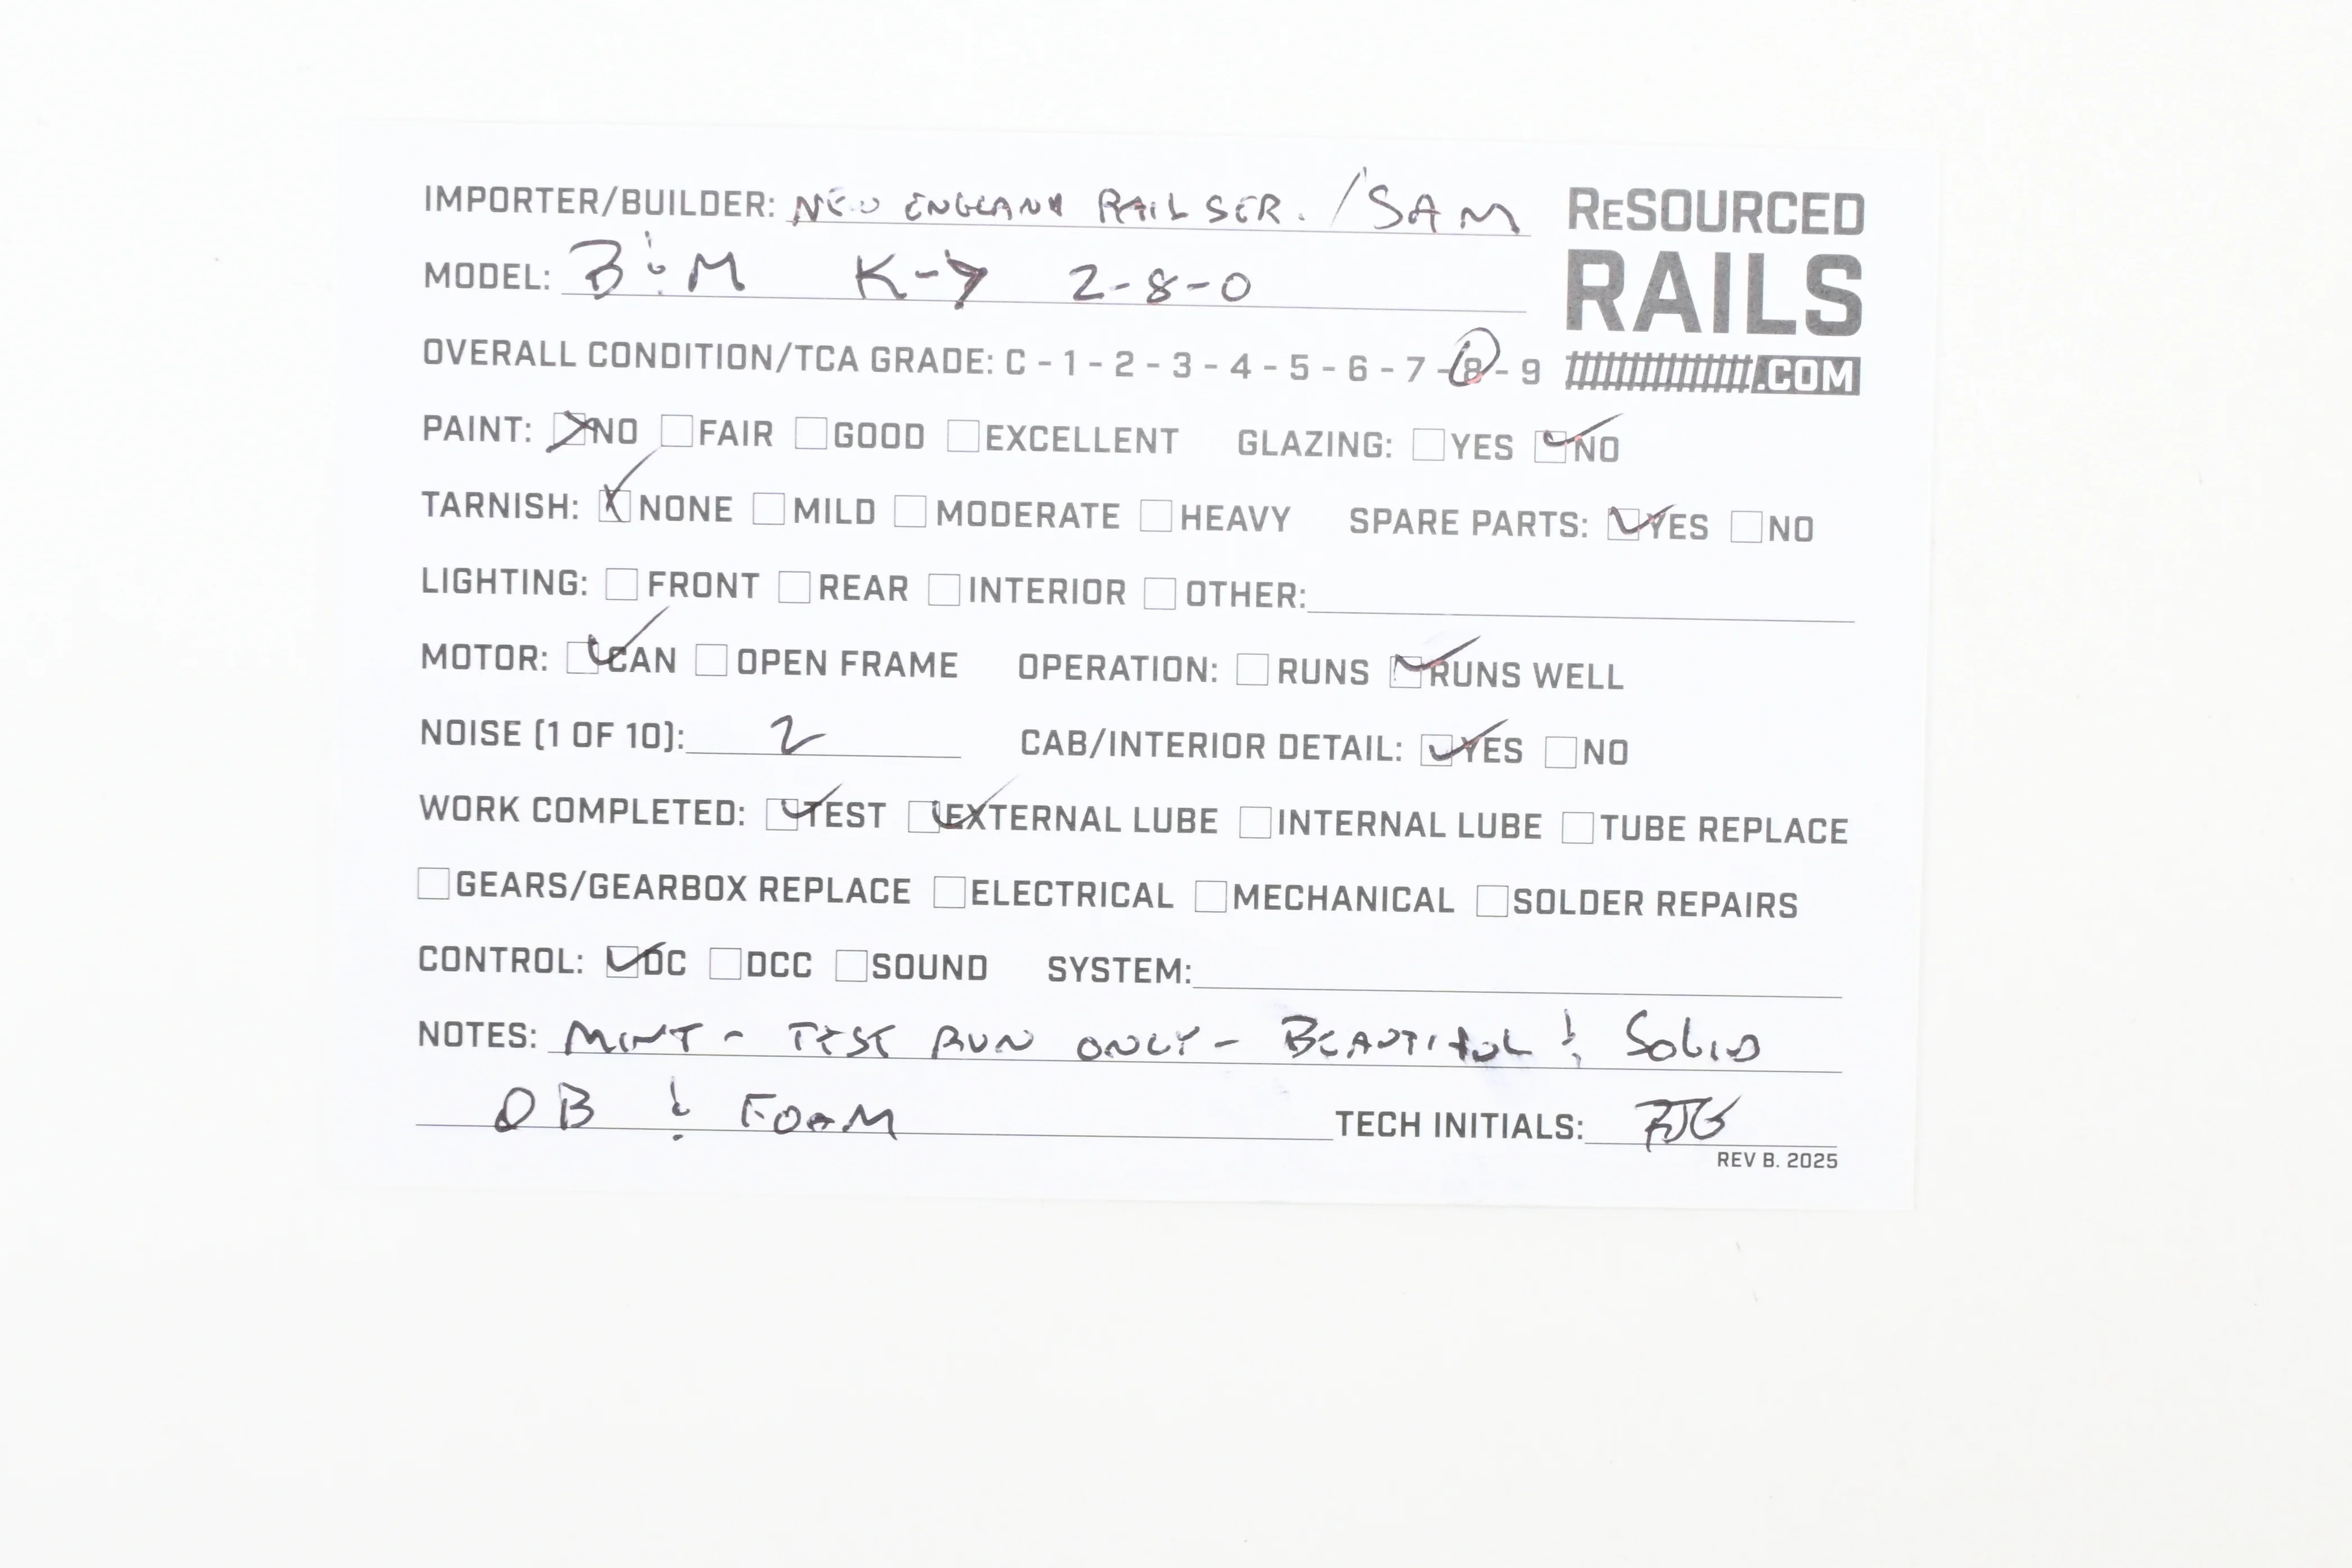 IMPORTER/BUILDER: NEW ENGLAND RAIL SER. / SAM
RESOURCED
RAILS
.COM
MODEL: B & M K-7 2-8-0
OVERALL CONDITION/TCA GRADE: C - 1 - 2 - 3 - 4 - 5 - 6 - 7 - 8 - 9
PAINT: NO FAIR GOOD EXCELLENT GLAZING: YES NO
TARNISH: NONE MILD MODERATE HEAVY SPARE PARTS: YES NO
LIGHTING: FRONT REAR INTERIOR OTHER:
MOTOR: CAN OPEN FRAME OPERATION: RUNS RUNS WELL
NOISE (1 OF 10): 2 CAB/INTERIOR DETAIL: YES NO
WORK COMPLETED: TEST EXTERNAL LUBE INTERNAL LUBE TUBE REPLACE
GEARS/GEARBOX REPLACE ELECTRICAL MECHANICAL SOLDER REPAIRS
CONTROL: DC DCC SOUND SYSTEM:
NOTES: MINT - TEST RUN ONLY - BEAUTIFUL & SOLID
OB & FOAM TECH INITIALS:
REV B. 2025